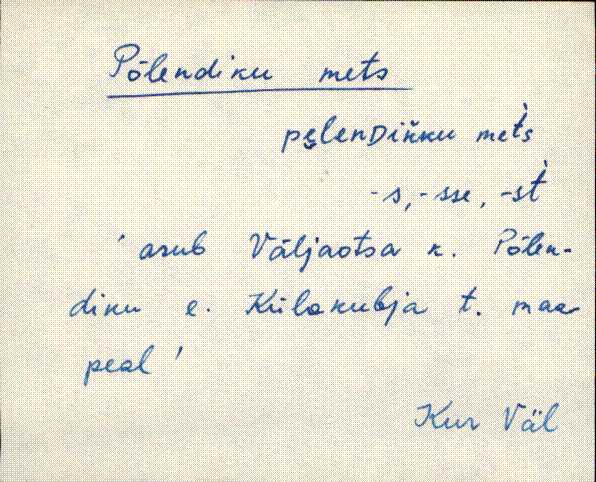 Põlendiku mets
pe̮lenDiňku met̀s
-s, -sse, -st̀
'asub Väljaotsa k. Põlen-
diku e. Külakubja t. maa
peal'
Kur Väl